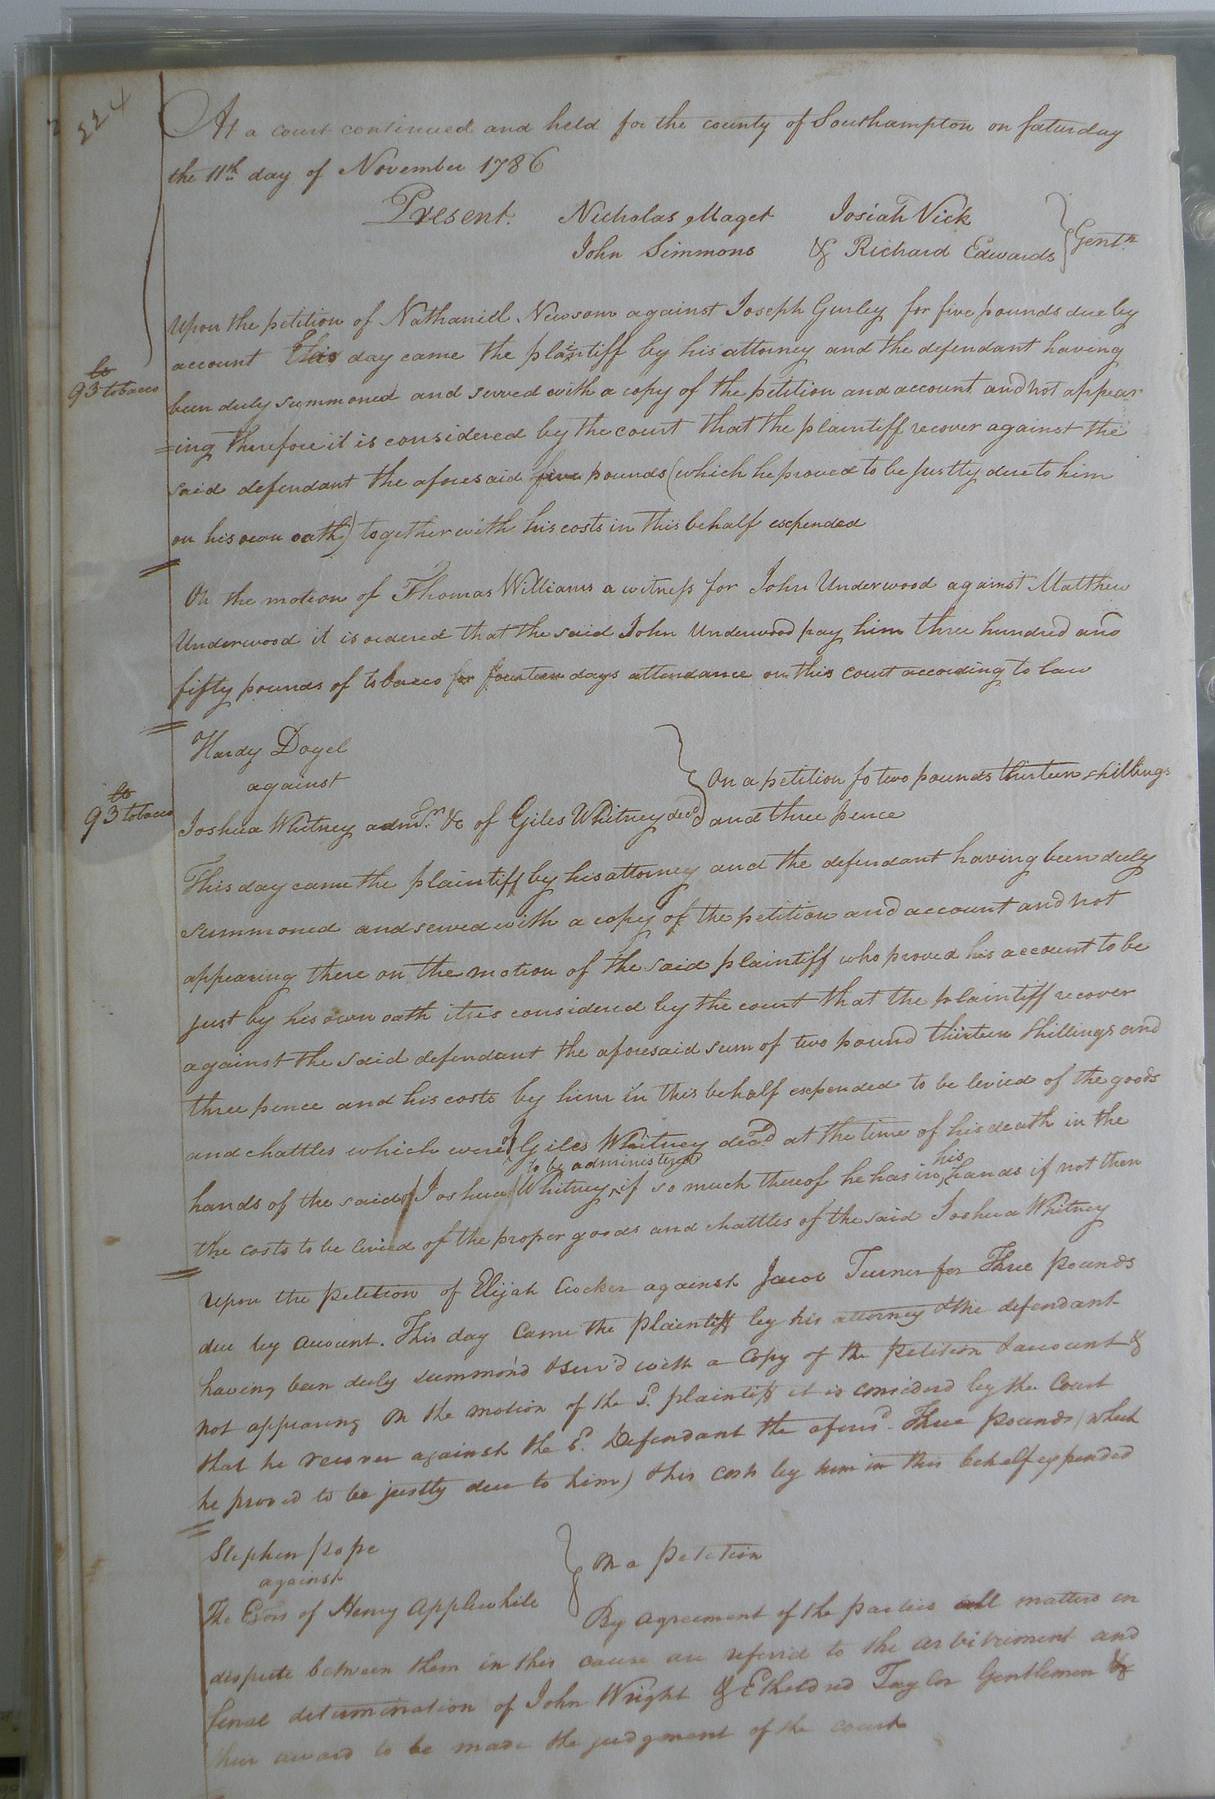 224
At a court continued and held for the county of Southampton on Saturday
the 11th day of November 1786
Present. Nicholas Maget Josiah Vick
John Simmons & Richard Edwards } Gentn
Upon the petition of Nathaniel Newsom against Joseph Gurley for five pounds due by
account This day came the plaintiff by his attorney and the defendant having
lb
93 tobacco
been duly summoned and served with a copy of the petition and account and not appear
=ing therefore it is considered by the court that the plaintiff recover against the
said defendant the aforesaid five pounds (which he proved to be justly due to him
on his own oath) together with his costs in this behalf expended
On the motion of Thomas Williams a witness for John Underwood against Matthew
Underwood it is ordered that the said John Underwood pay him three hundred and
fifty pounds of tobacco for fourteen days attendance on this court according to law
Hardy Doyel
against
Joshua Whitney admr. &c of Giles Whitney decd } On a petition fo two pounds thirteen shillings
and three pence
lb
93 tobacco
This day came the plaintiff by his attorney and the defendant having been duly
summoned and served with a copy of the petition and account and not
appearing there on the motion of the said plaintiff who proved his account to be
just by his own oath it is considered by the court that the plaintiff recover
against the said defendant the aforesaid sum of two pound thirteen shillings and
three pence and his costs by him in this behalf expended to be levied of the goods
and chattles which were of Giles Whitney decd at the time of his death in the
hands of the said Joshua Whitney to be administered if so much thereof he has in his hands if not then
the costs to be levied of the proper goods and chattles of the said Joshua Whitney
Upon the petition of Elijah Crocker against Jacob Turner for Three pounds
due by account. This day came the plaintiff by his attorney & the defendant
having been duly summon'd & serv'd with a Copy of the petition & account &
not appearing On the motion of the sd. plaintiff it is considerd by the Court
that he recover against the sd. Defendant the aforesd. Three pounds (which
he proved to be justly due to him) & his costs by him in this behalf expended
Stephen pope
against
The Exors of Henry Applewhite } On a petition
By agreement of the parties all matters in
dispute between them in this cause are referred to the arbitriment and
final determination of John Wright & Etheldred Taylor Gentlemen &
their award to be made the judgment of the court